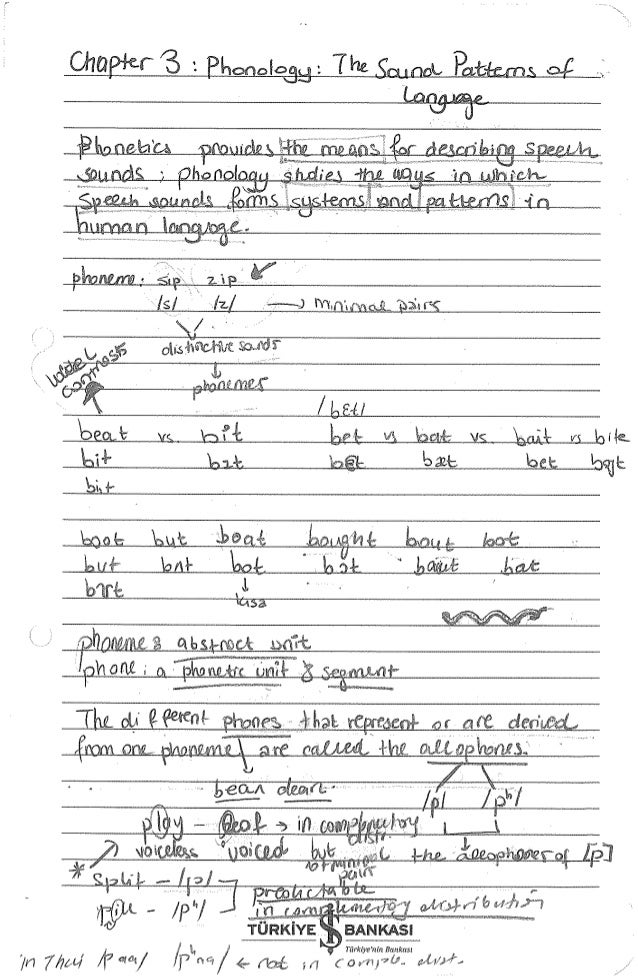 Chapter 3 : Phonology : The Sound Patterns of
Language
Phonetics provides the means for describing speech
sounds ; phonology studies the ways in which
speech sounds forms systems and patterns in
human language.
phoneme: sip zip
/s/ /z/ → minimal pairs
distinctive sands
phonemes
contrasts
/bɛt/
beat vs. bit bet vs bat vs. bait vs bite
bit bɪt bɛt bæt bet bajt
boot but boat bought bout bot
but bʌt bot bɔt bawt bat
kısa
phoneme : abstract unit
phone : a phonetic unit & segment
The different phones that represent or are derived
from one phoneme are called the allophones.
/p/ /pʰ/
play - → in complementary
distr.
voiceless voiced but not minimal pairs the allophones of [p]
* split - /p/ predictable
pill - /pʰ/ in complementory distribution
TÜRKİYE İŞ BANKASI
Türkiye'nin Bankası
in Thai /paa/ /pʰaa/ ← not in comple. dist.